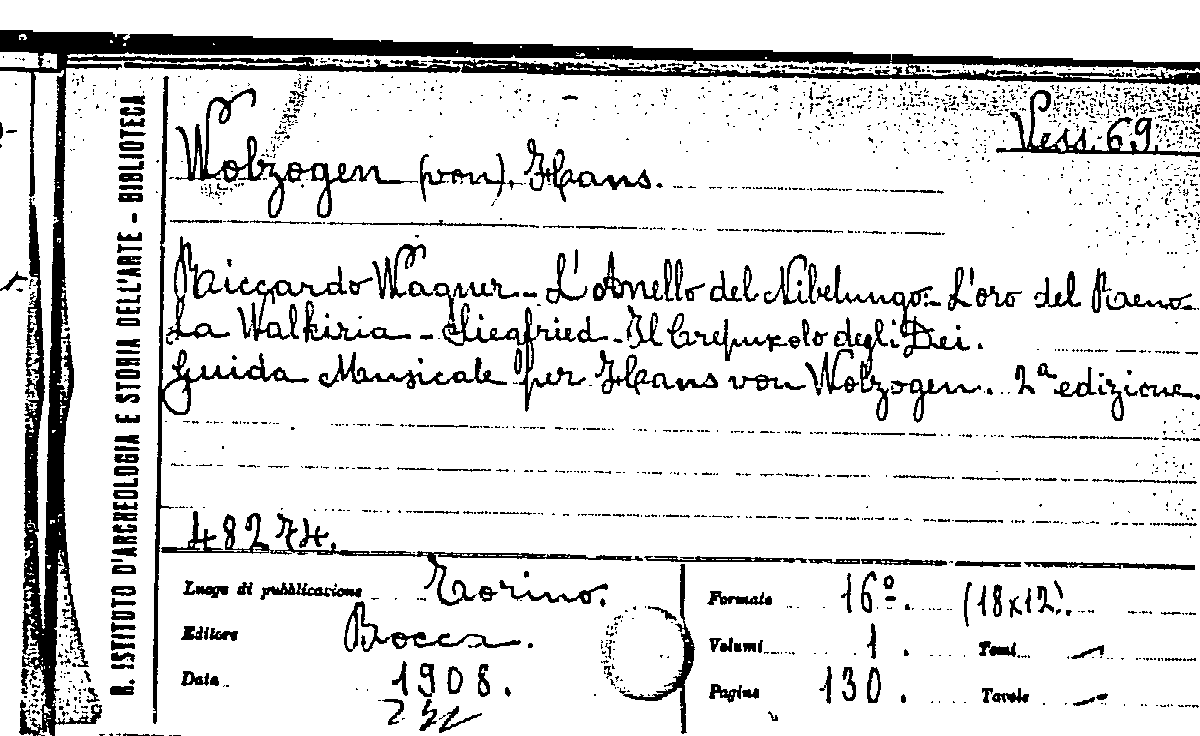 R. ISTITUTO D'ARCHEOLOGIA E STORIA DELL'ARTE - BIBLIOTECA
Vess. 69.
Wolzogen (von). Hans.
Riccardo Wagner - L'Anello del Nibelungo. - L'oro del Reno -
La Walkiria - Siegfried - Il Crepuscolo degli Dei.
Guida Musicale per Hans von Wolzogen. 2ª edizione.
48274.
Luogo di pubblicazione Torino.
Editore Bocca.
Data 1908.
Formato 16º. (18x12).
Volumi 1. Tomi -
Pagine 130. Tavole -